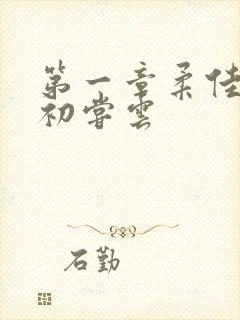 第一章柔佳
初尝云
石勤